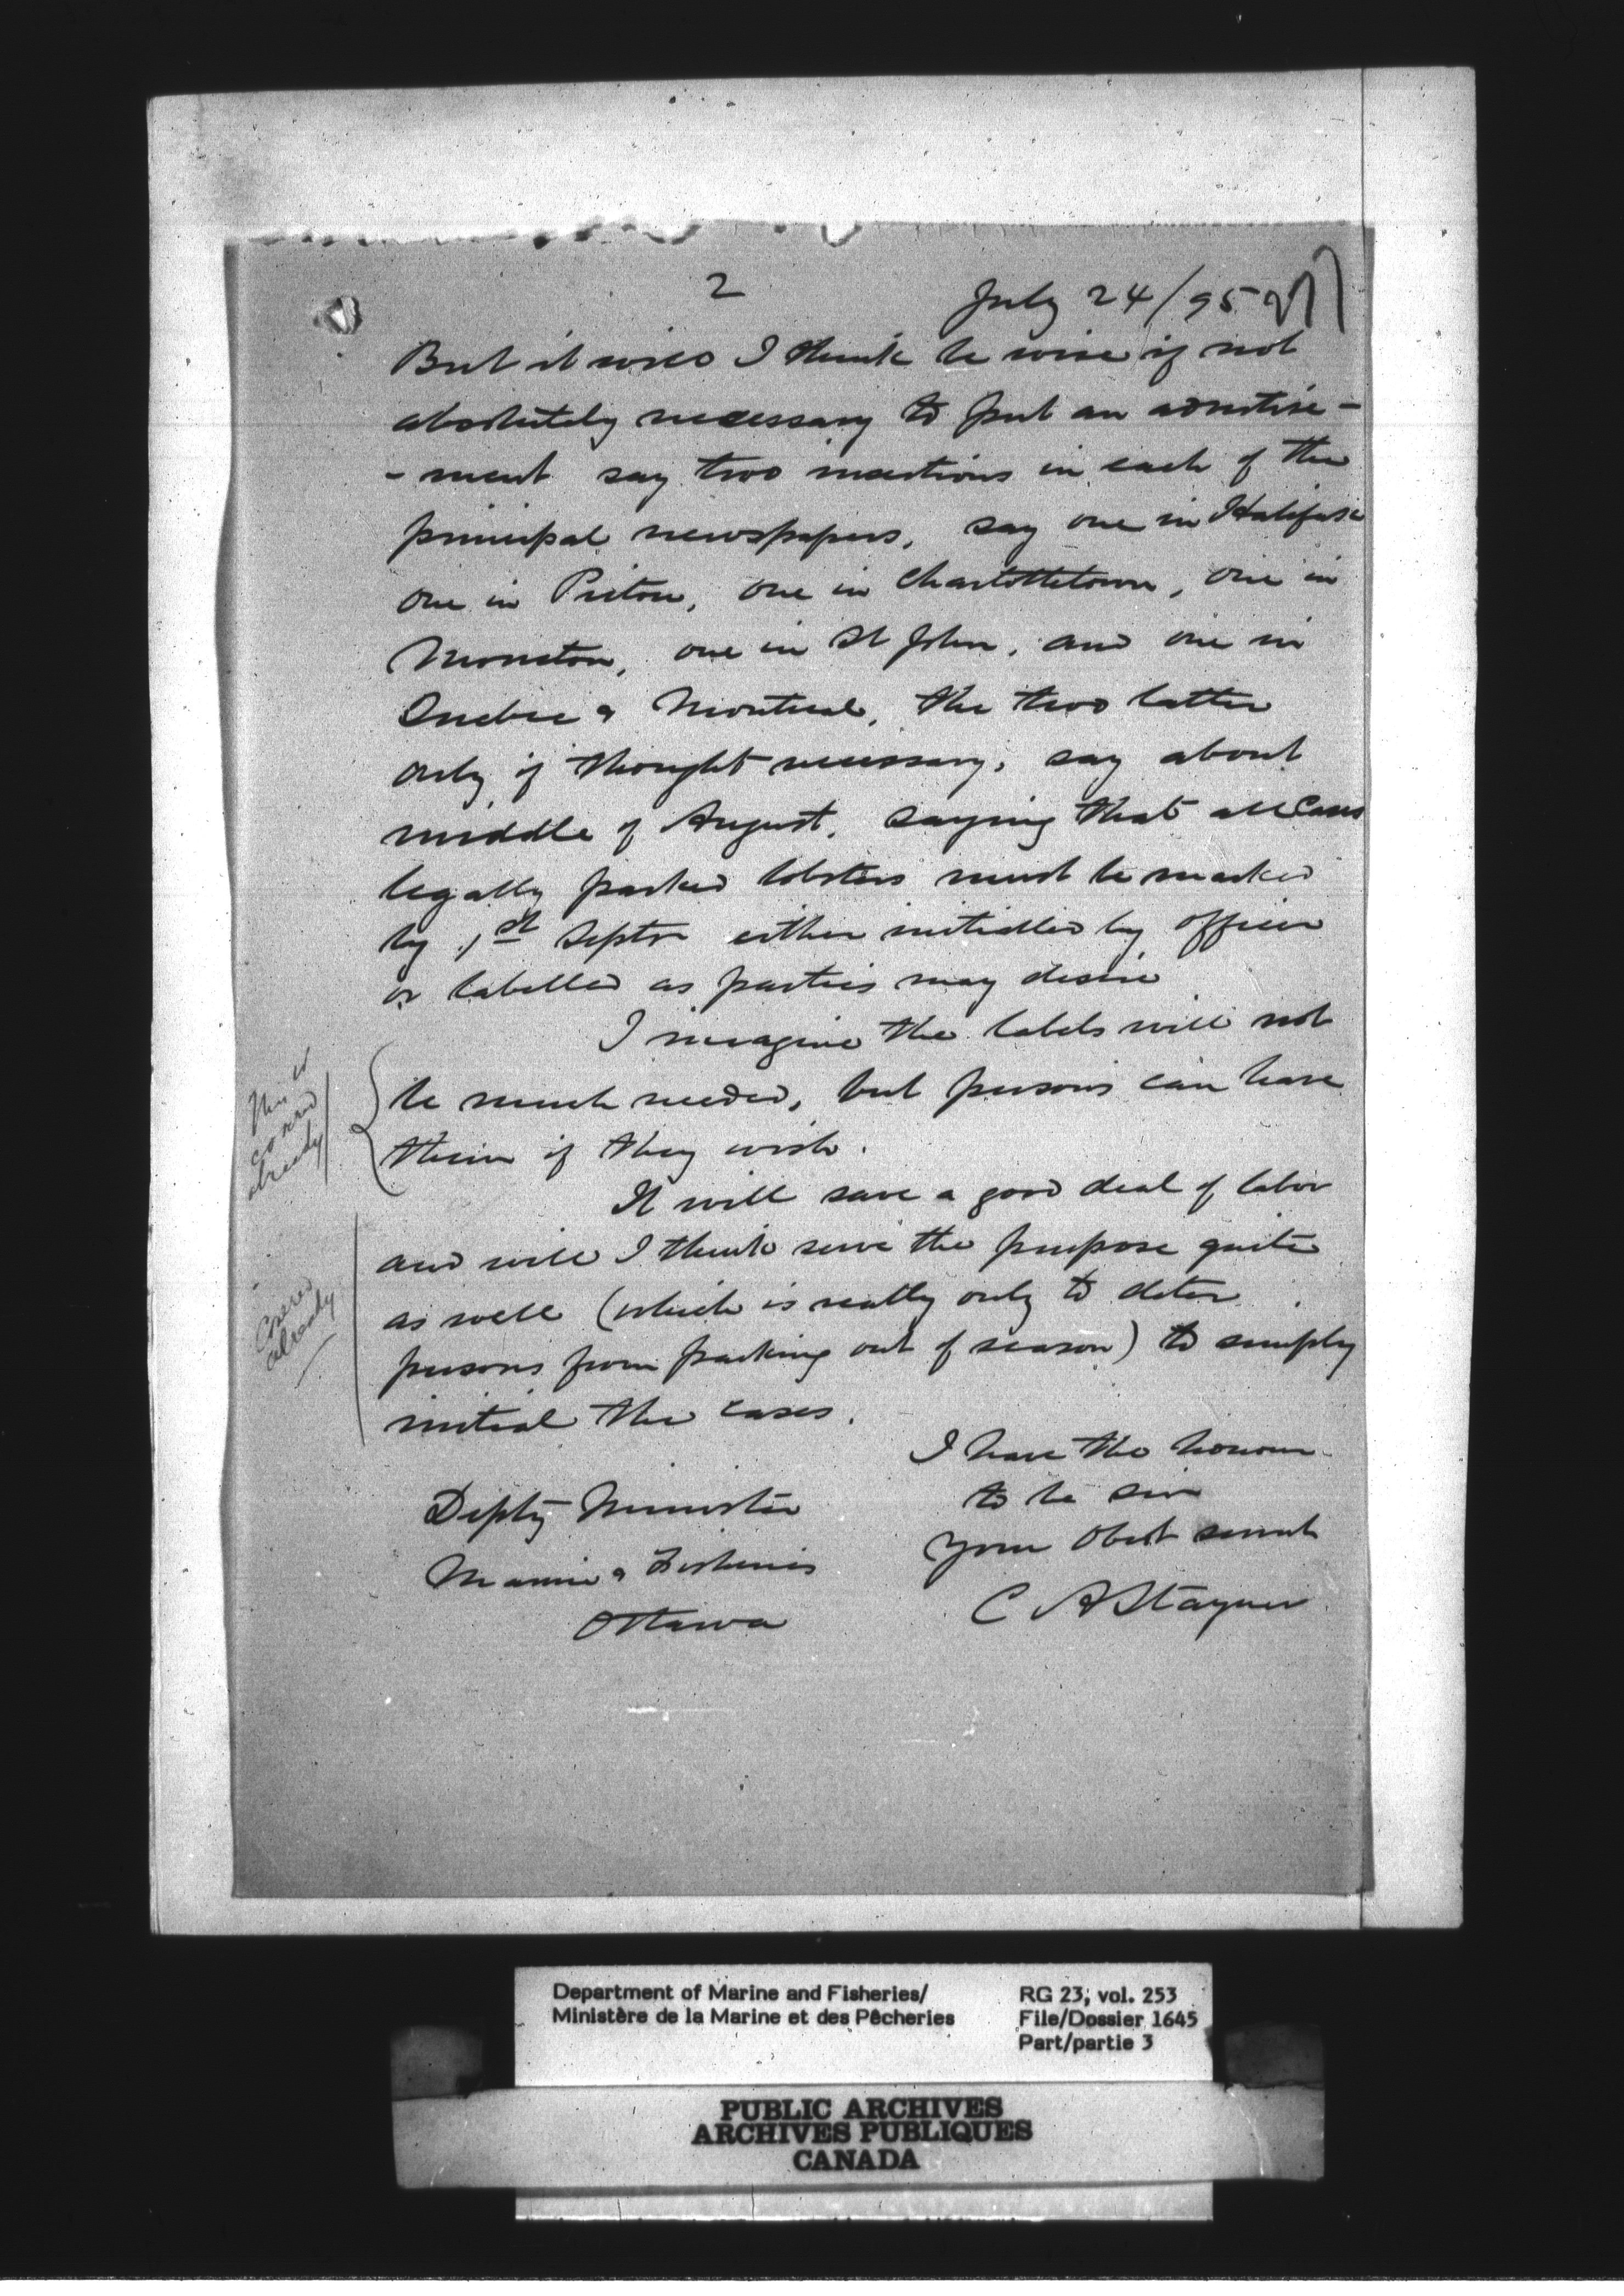 2
July 24/95 277
But it will I think be wise if not
absolutely necessary to put an advertise-
-ment say two insertions in each of the
principal newspapers, say one in Halifax
one in Pictou, one in Charlottetown, one in
Moncton, one in St John, and one in
Quebec & Montreal, the two latter
only if thought necessary, say about
middle of August, saying that all cases
legally packed lobsters must be marked
by 1st Septr either initialled by officer
or labelled as parties may desire
I imagine the labels will not
be much needed, but persons can have
them if they wish.
This is
covered
already
It will save a good deal of labor
and will I think serve the purpose quite
as well (which is really only to deter
persons from packing out of season) to simply
initial the cases.
Covered
already
I have the honour
to be sir
Your Obdt servant
C A Stayner
Depty Minister
Marine & Fisheries
Ottawa
Department of Marine and Fisheries/
Ministère de la Marine et des Pêcheries
RG 23, vol. 253
File/Dossier 1645
Part/partie 3
PUBLIC ARCHIVES
ARCHIVES PUBLIQUES
CANADA